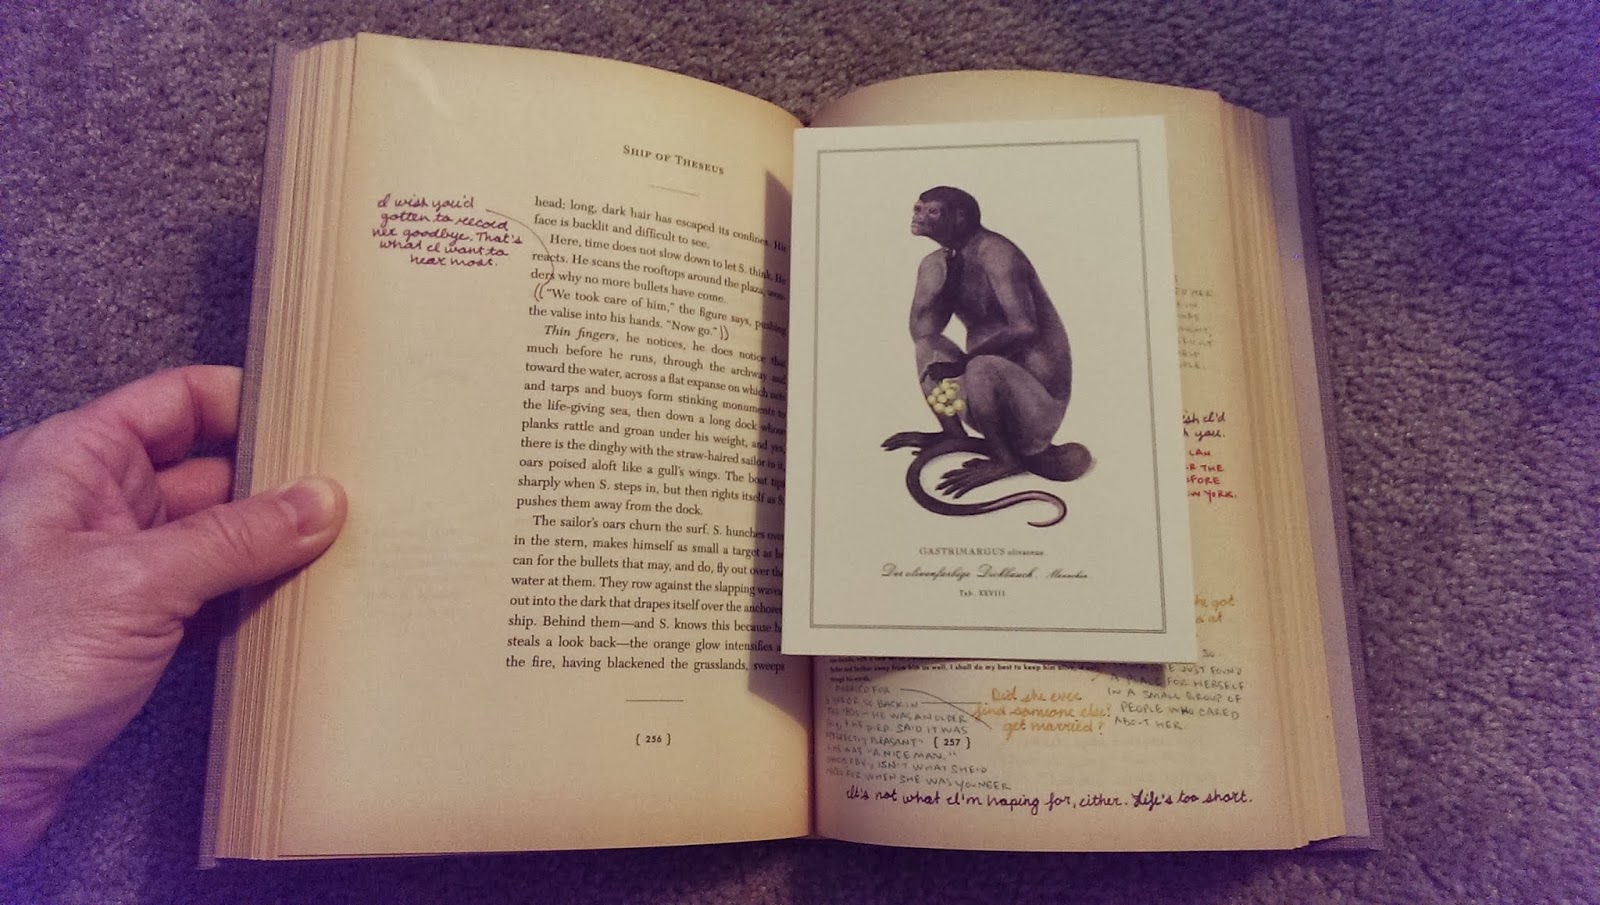 SHIP OF THESEUS
I wish you'd
gotten to record
her goodbye. That's
what I want to
hear most.
head; long, dark hair has escaped its confines. His
face is backlit and difficult to see.
Here, time does not slow down to let S. think. He
reacts. He scans the rooftops around the plaza, won-
ders why no more bullets have come.
"We took care of him," the figure says, pushing
the valise into his hands. "Now go."
Thin fingers, he notices, he does notice that
much before he runs, through the archway and
toward the water, across a flat expanse on which nets
and tarps and buoys form stinking monuments to
the life-giving sea, then down a long dock whose
planks rattle and groan under his weight, and yes,
there is the dinghy with the straw-haired sailor in it,
oars poised aloft like a gull's wings. The boat tips
sharply when S. steps in, but then rights itself as S.
pushes them away from the dock.
The sailor's oars churn the surf. S. hunches over
in the stern, makes himself as small a target as he
can for the bullets that may, and do, fly out over the
water at them. They row against the slapping waves
out into the dark that drapes itself over the anchored
ship. Behind them—and S. knows this because he
steals a look back—the orange glow intensifies as
the fire, having blackened the grasslands, sweeps
{ 256 }
GASTRIMARGUS olivaceus.
Der olivenfarbige Dickbauch. Mannchen
Tab. XXVIII
you.
LAN
THE
YORK.
got
at
from him as well, I shall do my best to keep him
SO
JUST FOUND
A PLACE FOR HERSELF
IN A SMALL GROUP OF
PEOPLE WHO CARED
ABOUT HER.
Did she ever
find someone else?
get married?
MARRIED FOR
BACK IN
THE '80s – HE WAS AN OLDER
DIED. SAID IT WAS
"PERFECTLY PLEASANT"
"A NICE MAN."
ISN'T WHAT SHE'D
FOR WHEN SHE WAS YOUNGER
{ 257 }
It's not what I'm hoping for, either. Life's too short.